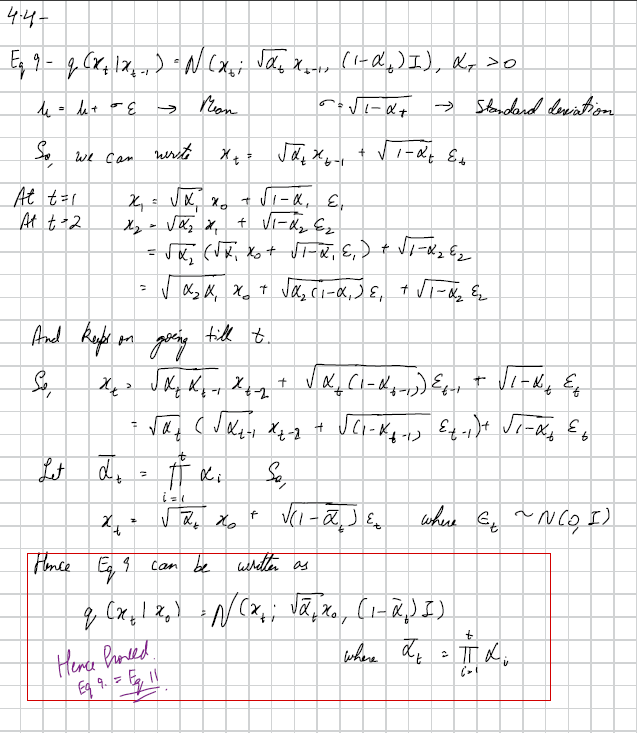 4.4-
Eq 9 - q(x_t | x_{t-1}) = N(x_t; √α_t x_{t-1}, (1-α_t)I), α_T > 0
μ = μ + σε → Mean σ = √(1-α_t) → Standard deviation
So, we can write x_t = √α_t x_{t-1} + √(1-α_t) ε_t
At t=1 x_1 = √α_1 x_0 + √(1-α_1) ε_1
At t=2 x_2 = √α_2 x_1 + √(1-α_2) ε_2
= √α_2 (√α_1 x_0 + √(1-α_1) ε_1) + √(1-α_2) ε_2
= √(α_2 α_1) x_0 + √(α_2(1-α_1)) ε_1 + √(1-α_2) ε_2
And keeps on going till t.
So, x_t = √(α_t α_{t-1}) x_{t-2} + √(α_t(1-α_{t-1})) ε_{t-1} + √(1-α_t) ε_t
= √α_t (√α_{t-1} x_{t-2} + √(1-α_{t-1}) ε_{t-1}) + √(1-α_t) ε_t
Let ᾱ_t = ∏_{i=1}^{t} α_i So,
x_t = √ᾱ_t x_0 + √(1-ᾱ_t) ε_t where ε_t ~ N(0, I)
Hence Eq 9 can be written as
q(x_t | x_0) = N(x_t; √ᾱ_t x_0, (1-ᾱ_t)I)
where ᾱ_t = ∏_{i=1}^{t} α_i
Hence Proved.
Eq 9. = Eq 11.